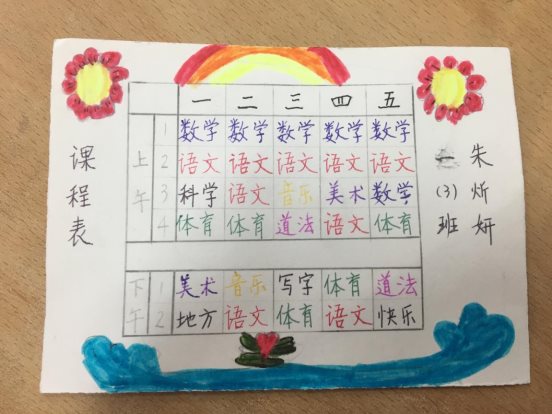 课程表
一 二 三 四 五
上午
1 数学 数学 数学 数学 数学
2 语文 语文 语文 语文 语文
3 科学 语文 音乐 美术 数学
4 体育 体育 道法 语文 体育
下午
1 美术 音乐 写字 体育 道法
2 地方 语文 体育 语文 快乐
一(3)班
朱炘妍